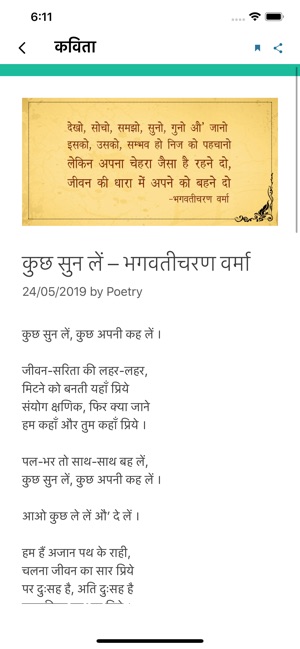 6:11
कविता
देखो, सोचो, समझो, सुनो, गुनो औ' जानो
इसको, उसको, सम्भव हो निज को पहचानो
लेकिन अपना चेहरा जैसा है रहने दो,
जीवन की धारा में अपने को बहने दो
-भगवतीचरण वर्मा
कुछ सुन लें – भगवतीचरण वर्मा
24/05/2019 by Poetry
कुछ सुन लें, कुछ अपनी कह लें ।
जीवन-सरिता की लहर-लहर,
मिटने को बनती यहाँ प्रिये
संयोग क्षणिक, फिर क्या जाने
हम कहाँ और तुम कहाँ प्रिये ।
पल-भर तो साथ-साथ बह लें,
कुछ सुन लें, कुछ अपनी कह लें ।
आओ कुछ ले लें औ' दे लें ।
हम हैं अजान पथ के राही,
चलना जीवन का सार प्रिये
पर दुःसह है, अति दुःसह है